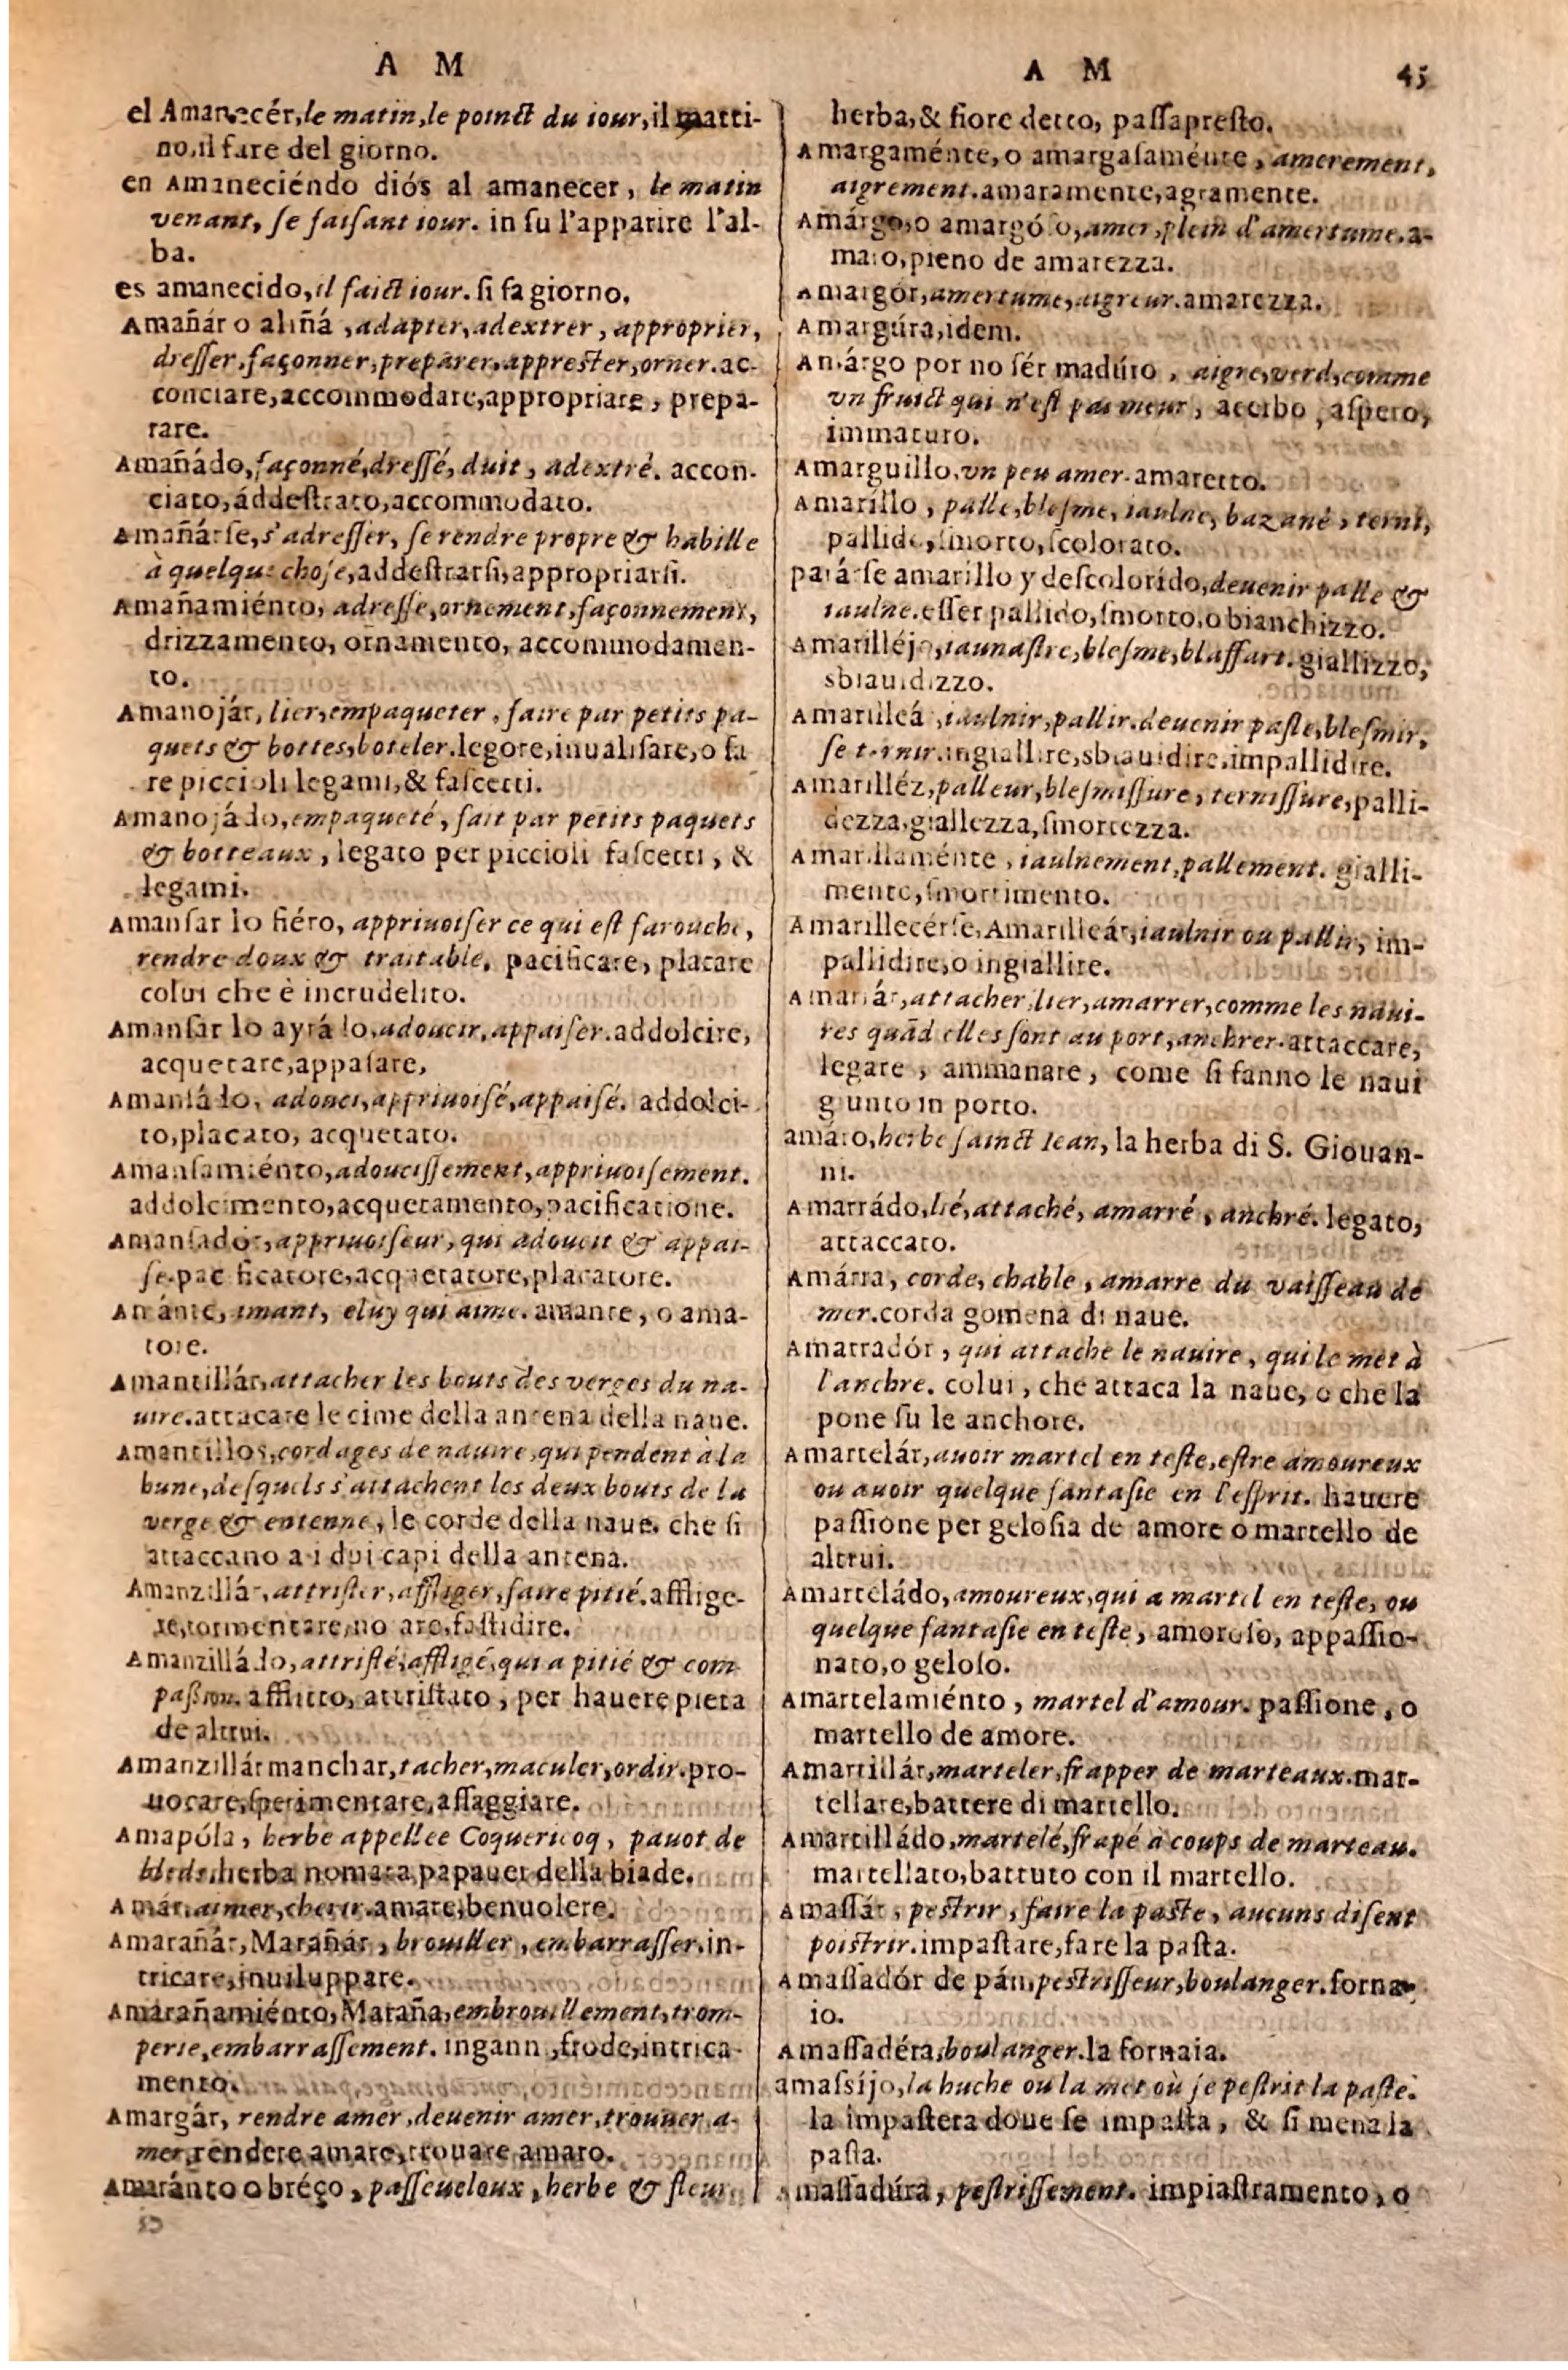 A M
el Amanecér, le matin, le poinct du iour, il matti-
no, il fare del giorno.
en Amaneciéndo diós al amanecer, le matin
venant, se faiſant iour. in ſu l'apparire l'al-
ba.
es amanecido, il faict iour. ſi fa giorno.
Amañár o aliñá, adapter, adextrer, approprier,
dreſſer, façonner, preparer, appreſter, orner. ac-
conciare, accommodare, appropriare, prepa-
rare.
Amañádo, façonné, dreſſé, duit, adextré. accon-
ciato, áddeſtrato, accommodato.
Amañárſe, s'adreſſer, ſe rendre propre & habille
à quelque choſe, addeſtrarſi, appropriarſi.
Amañamiénto, adreſſe, ornement, façonnement,
drizzamento, ornamento, accommodamen-
to.
Amanojár, lier, empaqueter, faire par petits pa-
quets & bottes, boteler. legore, inualiſare, o fa
re piccioli legami, & faſcetti.
Amanojádo, empaqueté, fait par petits paquets
& botteaux, legato per piccioli faſcetti, &
legami.
Amanſar lo fiéro, appriuoiſer ce qui eſt farouche,
rendre doux & traitable. pacificare, placare
colui che è incrudelito.
Amanſar lo ayrádo, adoucir, appaiſer. addolcire,
acquetare, appaſare,
Amanſádo, adouci, appriuoiſé, appaiſé. addolci-
to, placato, acquetato.
Amanſamiénto, adouciſſement, appriuoiſement.
addolcimento, acquetamento, pacificatione.
Amanſadór, appriuoiſeur, qui adoucit & appai-
ſe. pacificatore, acquetatore, placatore.
Amánte, amant, celuy qui aime. amante, o ama-
tore.
Amantillár, attacher les bouts des verges du na-
uire. attacare le cime della antena della naue.
Amantillos, cordages de nauire, qui pendent à la
hune, deſquels s'attachent les deux bouts de la
verge & entenne, le corde della naue. che ſi
attaccano a i doi capi della antena.
Amanzillár, attriſter, affliger, faire pitié. afflige-
re, tormentare, noiare, faſtidire.
Amanzilládo, attriſté, affligé, qui a pitié & com-
paßion. afflitto, attriſtato, per hauere pieta
de altrui.
Amanzillár manchar, tacher, maculer, ordir. pro-
uocare, ſperimentare, aſſaggiare.
Amapóla, herbe appellee Coquericoq, pauot de
bleds. herba nomata papauer della biade.
Amár, aimer, cherir. amare, benuolere.
Amarañár, Marañár, brouiller, embarraſſer. in-
tricare, inuiluppare.
Amarañamiénto, Maraña, embrouillement, trom-
perie, embarraſſement. ingann, frode, intrica-
mento.
Amargár, rendre amer, deuenir amer, trouuer a-
mer, rendere amare, trouare amaro.
Amaránto o bréço, paſſeueloux, herbe & fleur
A M 45
herba, & fiore detto, paſſapreſto.
Amargaménte, o amargaſaménte, amerement,
aigrement. amaramente, agramente.
Amárgo, o amargóſo, amer, plein d'amertume. a-
maro, pieno de amarezza.
Amargór, amertume, aigreur. amarezza.
Amargúra, idem.
Amárgo por no ſér madúro, aigre, verd, comme
vn fruict qui n'eſt pas meur, acerbo, aſpero,
immaturo.
Amarguillo, vn peu amer. amaretto.
Amaríllo, palle, bleſme, iaulne, bazané, terni,
pallido, ſmorto, ſcolorato.
parárſe amarillo y deſcolorído, deuenir palle &
iaulne. eſſer pallido, ſmorto, o bianchizzo.
Amarilléjo, iaunaſtre, bleſme, blaffart. giallizzo,
sbiauidizzo.
Amarilleá, iaulnir, pallir. deuenir paſle, bleſmir,
ſe ternir. ingiallire, sbiauidire, impallidire.
Amarilléz, palleur, bleſmiſſure, terniſſure, palli-
dezza, giallezza, ſmortezza.
Amarillaménte, iaulnement, pallement. gialli-
mente, ſmortimento.
Amarillecérſe, Amarilleár, iaulnir ou pallir, im-
pallidire, o ingiallire.
Amarrár, attacher, lier, amarrer, comme les naui-
res quãd elles ſont au port, anchrer. attaccare,
legare, ammanare, come ſi fanno le naui
giunto in porto.
amáro, herbe ſainct Iean, la herba di S. Giouan-
ni.
Amarrádo, lié, attaché, amarré, anchré. legato,
attaccato.
Amárra, corde, chable, amarre du vaiſſeau de
mer. corda gomena di naue.
Amarradór, qui attache le nauire, qui le met à
l'anchre. colui, che attaca la naue, o che la
pone ſu le anchore.
Amartelár, auoir martel en teſte, eſtre amoureux
ou auoir quelque fantaſie en l'eſprit. hauere
paſſione per geloſia de amore o martello de
altrui.
Amarteládo, amoureux, qui a martel en teſte, ou
quelque fantaſie en teſte, amoroſo, appaſſio-
nato, o geloſo.
Amartelamiénto, martel d'amour. paſſione, o
martello de amore.
Amartillár, marteler, frapper de marteaux. mar-
tellare, battere di martello.
Amartilládo, martelé, frapé à coups de marteau.
martellato, battuto con il martello.
Amaſſár, peſtrir, faire la paſte, aucuns diſent
poiſtrir. impaſtare, fare la paſta.
Amaſſadór de pán, peſtriſſeur, boulanger. forna-
io.
Amaſſadéra, boulanger. la fornaia.
amaſsíjo, la huche ou la met où ſe peſtrit la paſte.
la impaſtera doue ſe impaſta, & ſi mena la
paſta.
Amaſſadúra, peſtriſſement. impiaſtramento, o